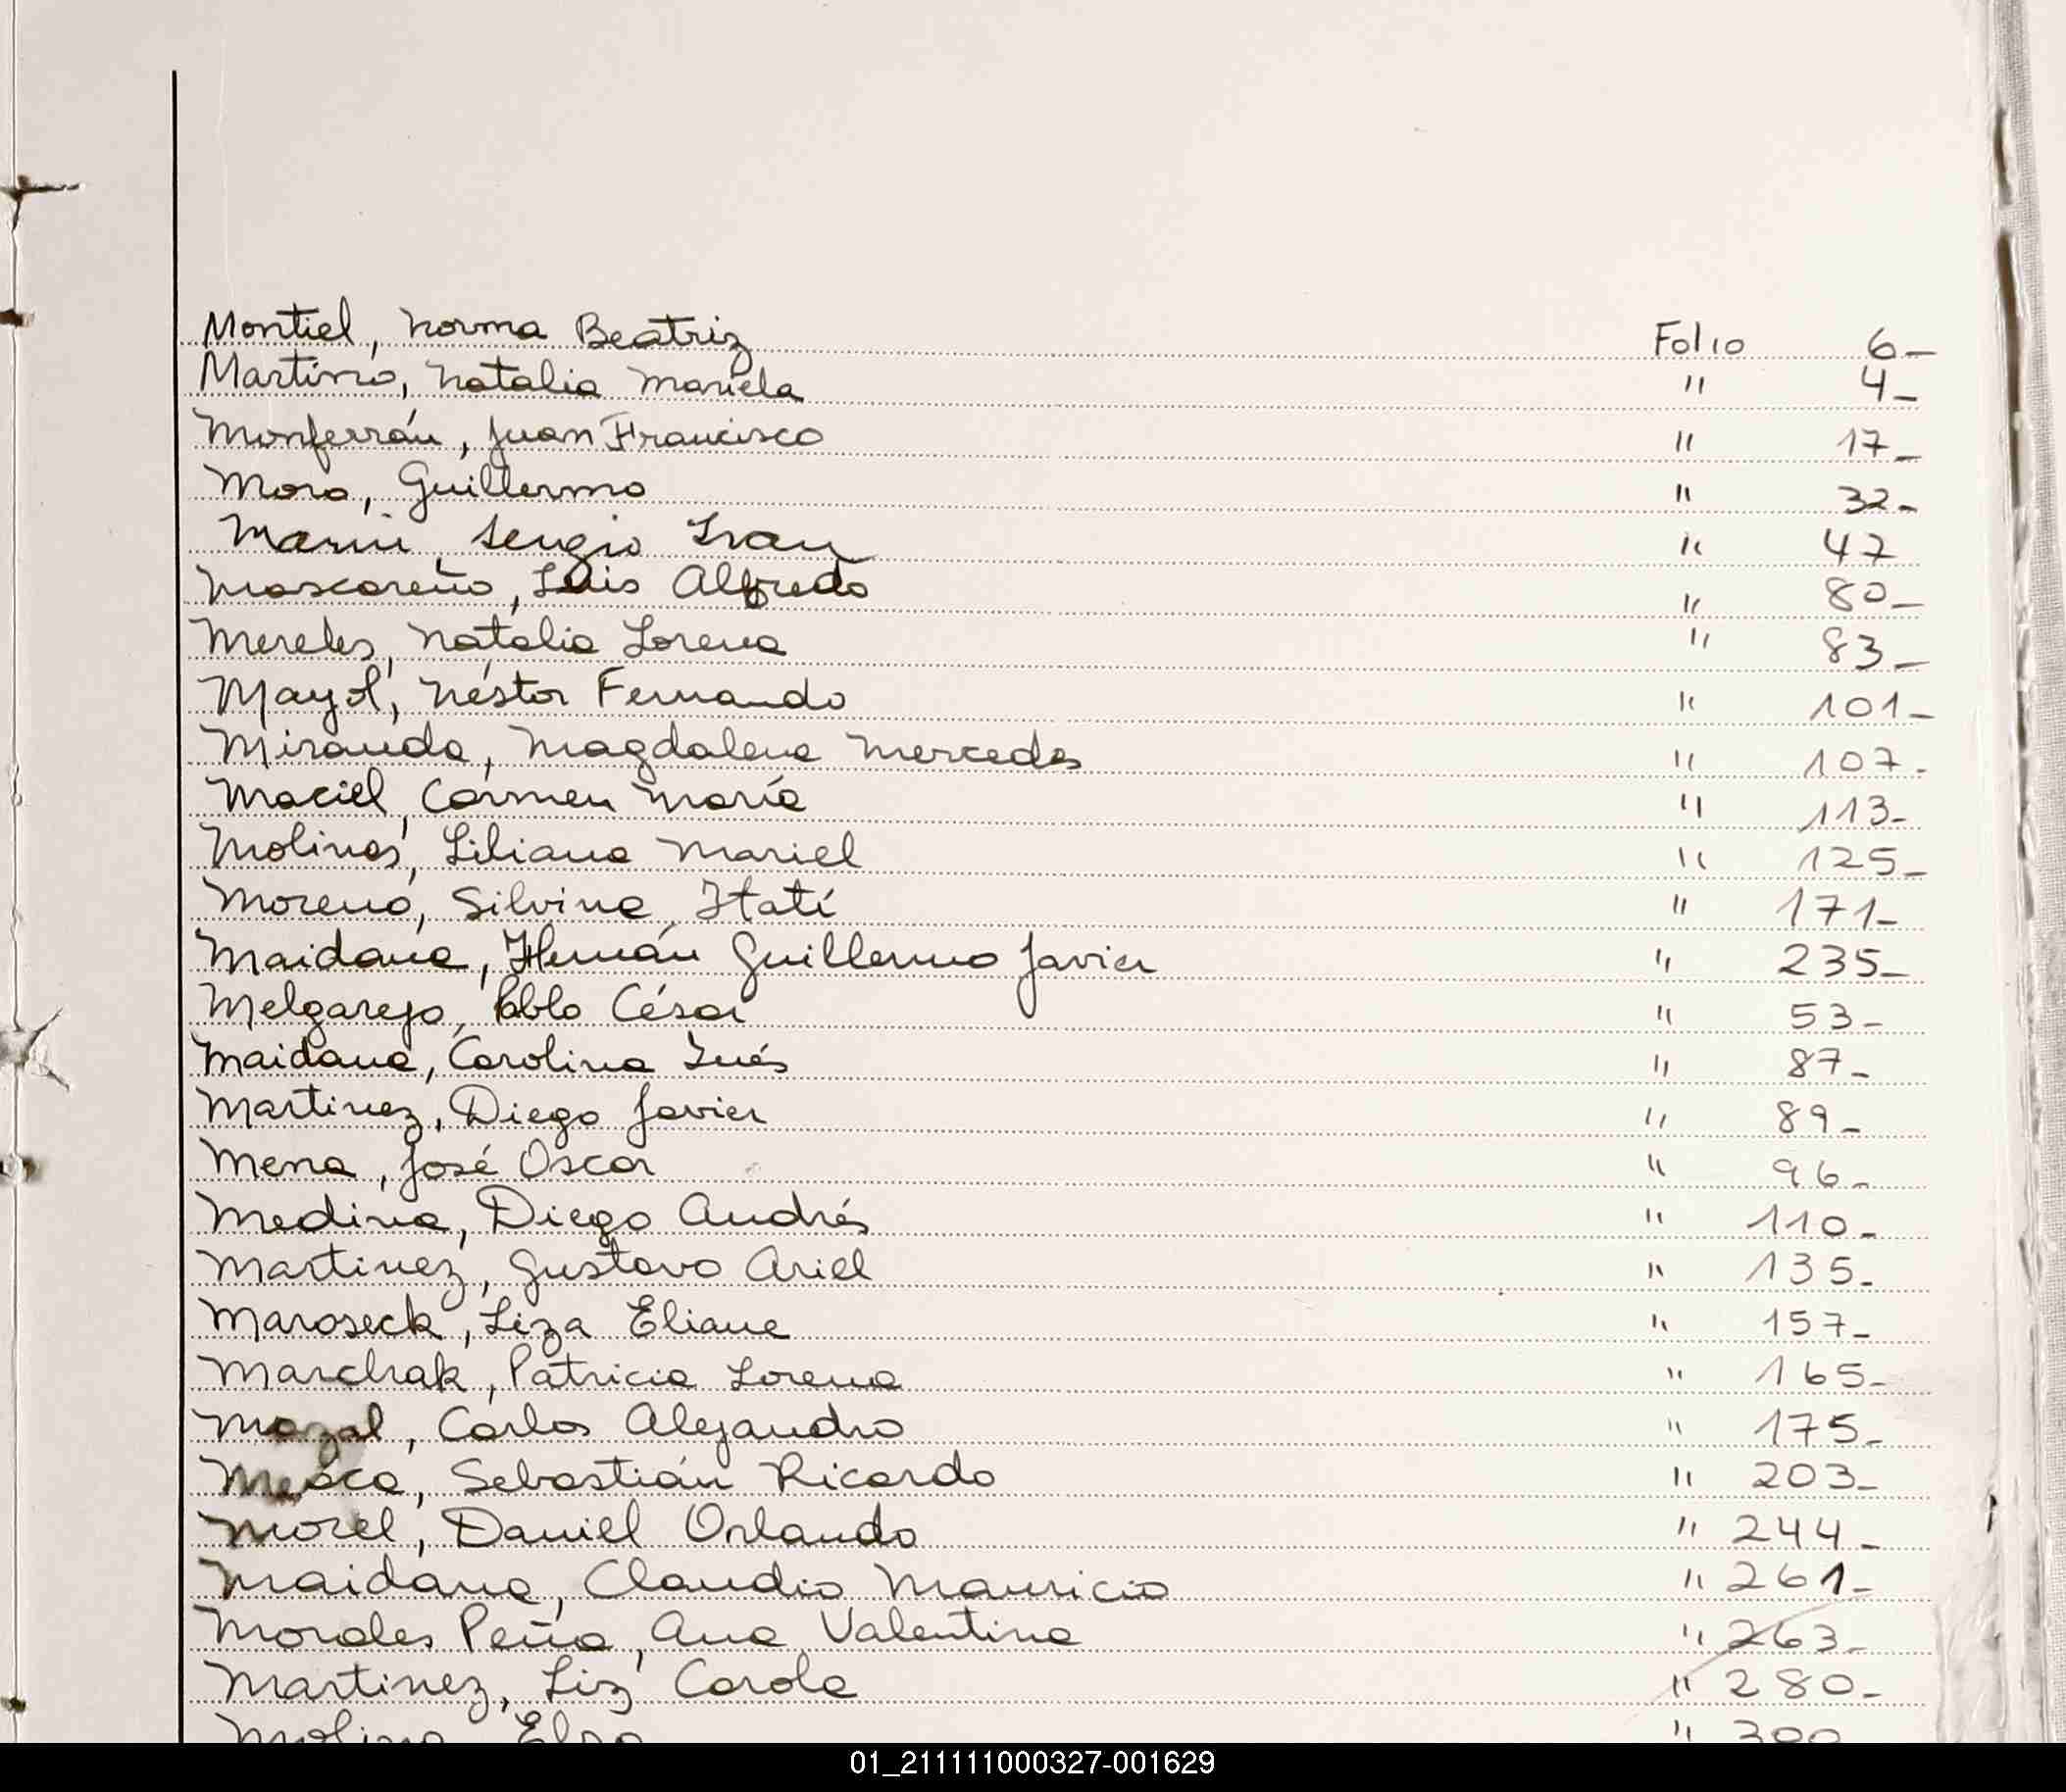 Montiel, Norma Beatriz Folio 6-
Martino, Natalia Mariela " 4-
Monferrán, Juan Francisco " 17-
Moro, Guillermo " 32-
Marin, Sergio Ivan " 47
Moscoreño, Luis Alfredo " 80-
Mereles, Natalia Lorena " 83-
Mayol, Néstor Fernando " 101-
Miranda, Magdalena Mercedes " 107-
Maciel, Carmen María " 113-
Molinas, Liliana Mariel " 125-
Moreno, Silvina Itatí " 171-
Maidana, Hernán Guillermo Javier " 235-
Melgarejo, Pablo César " 53-
Maidana, Carolina Inés " 87-
Martinez, Diego Javier " 89-
Mena, José Oscar " 96-
Medina, Diego Andrés " 110-
Martinez, Gustavo Ariel " 135-
Maroseck, Liza Eliane " 157-
Marchak, Patricia Lorena " 165-
Mazal, Carlos Alejandro " 175-
Sebastián Ricardo " 203-
Morel, Daniel Orlando " 244-
Maidana, Claudio Mauricio " 261-
Morales Peña, Ana Valentina " 263-
Martinez, Liz Carola " 280-
Molina, Elsa " 300
01_211111000327-001629